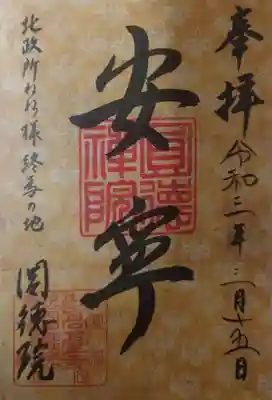 奉拝 令和三年三月十五日
安寧
圓德禅院
北政所ねね様 終焉の地
圓徳院